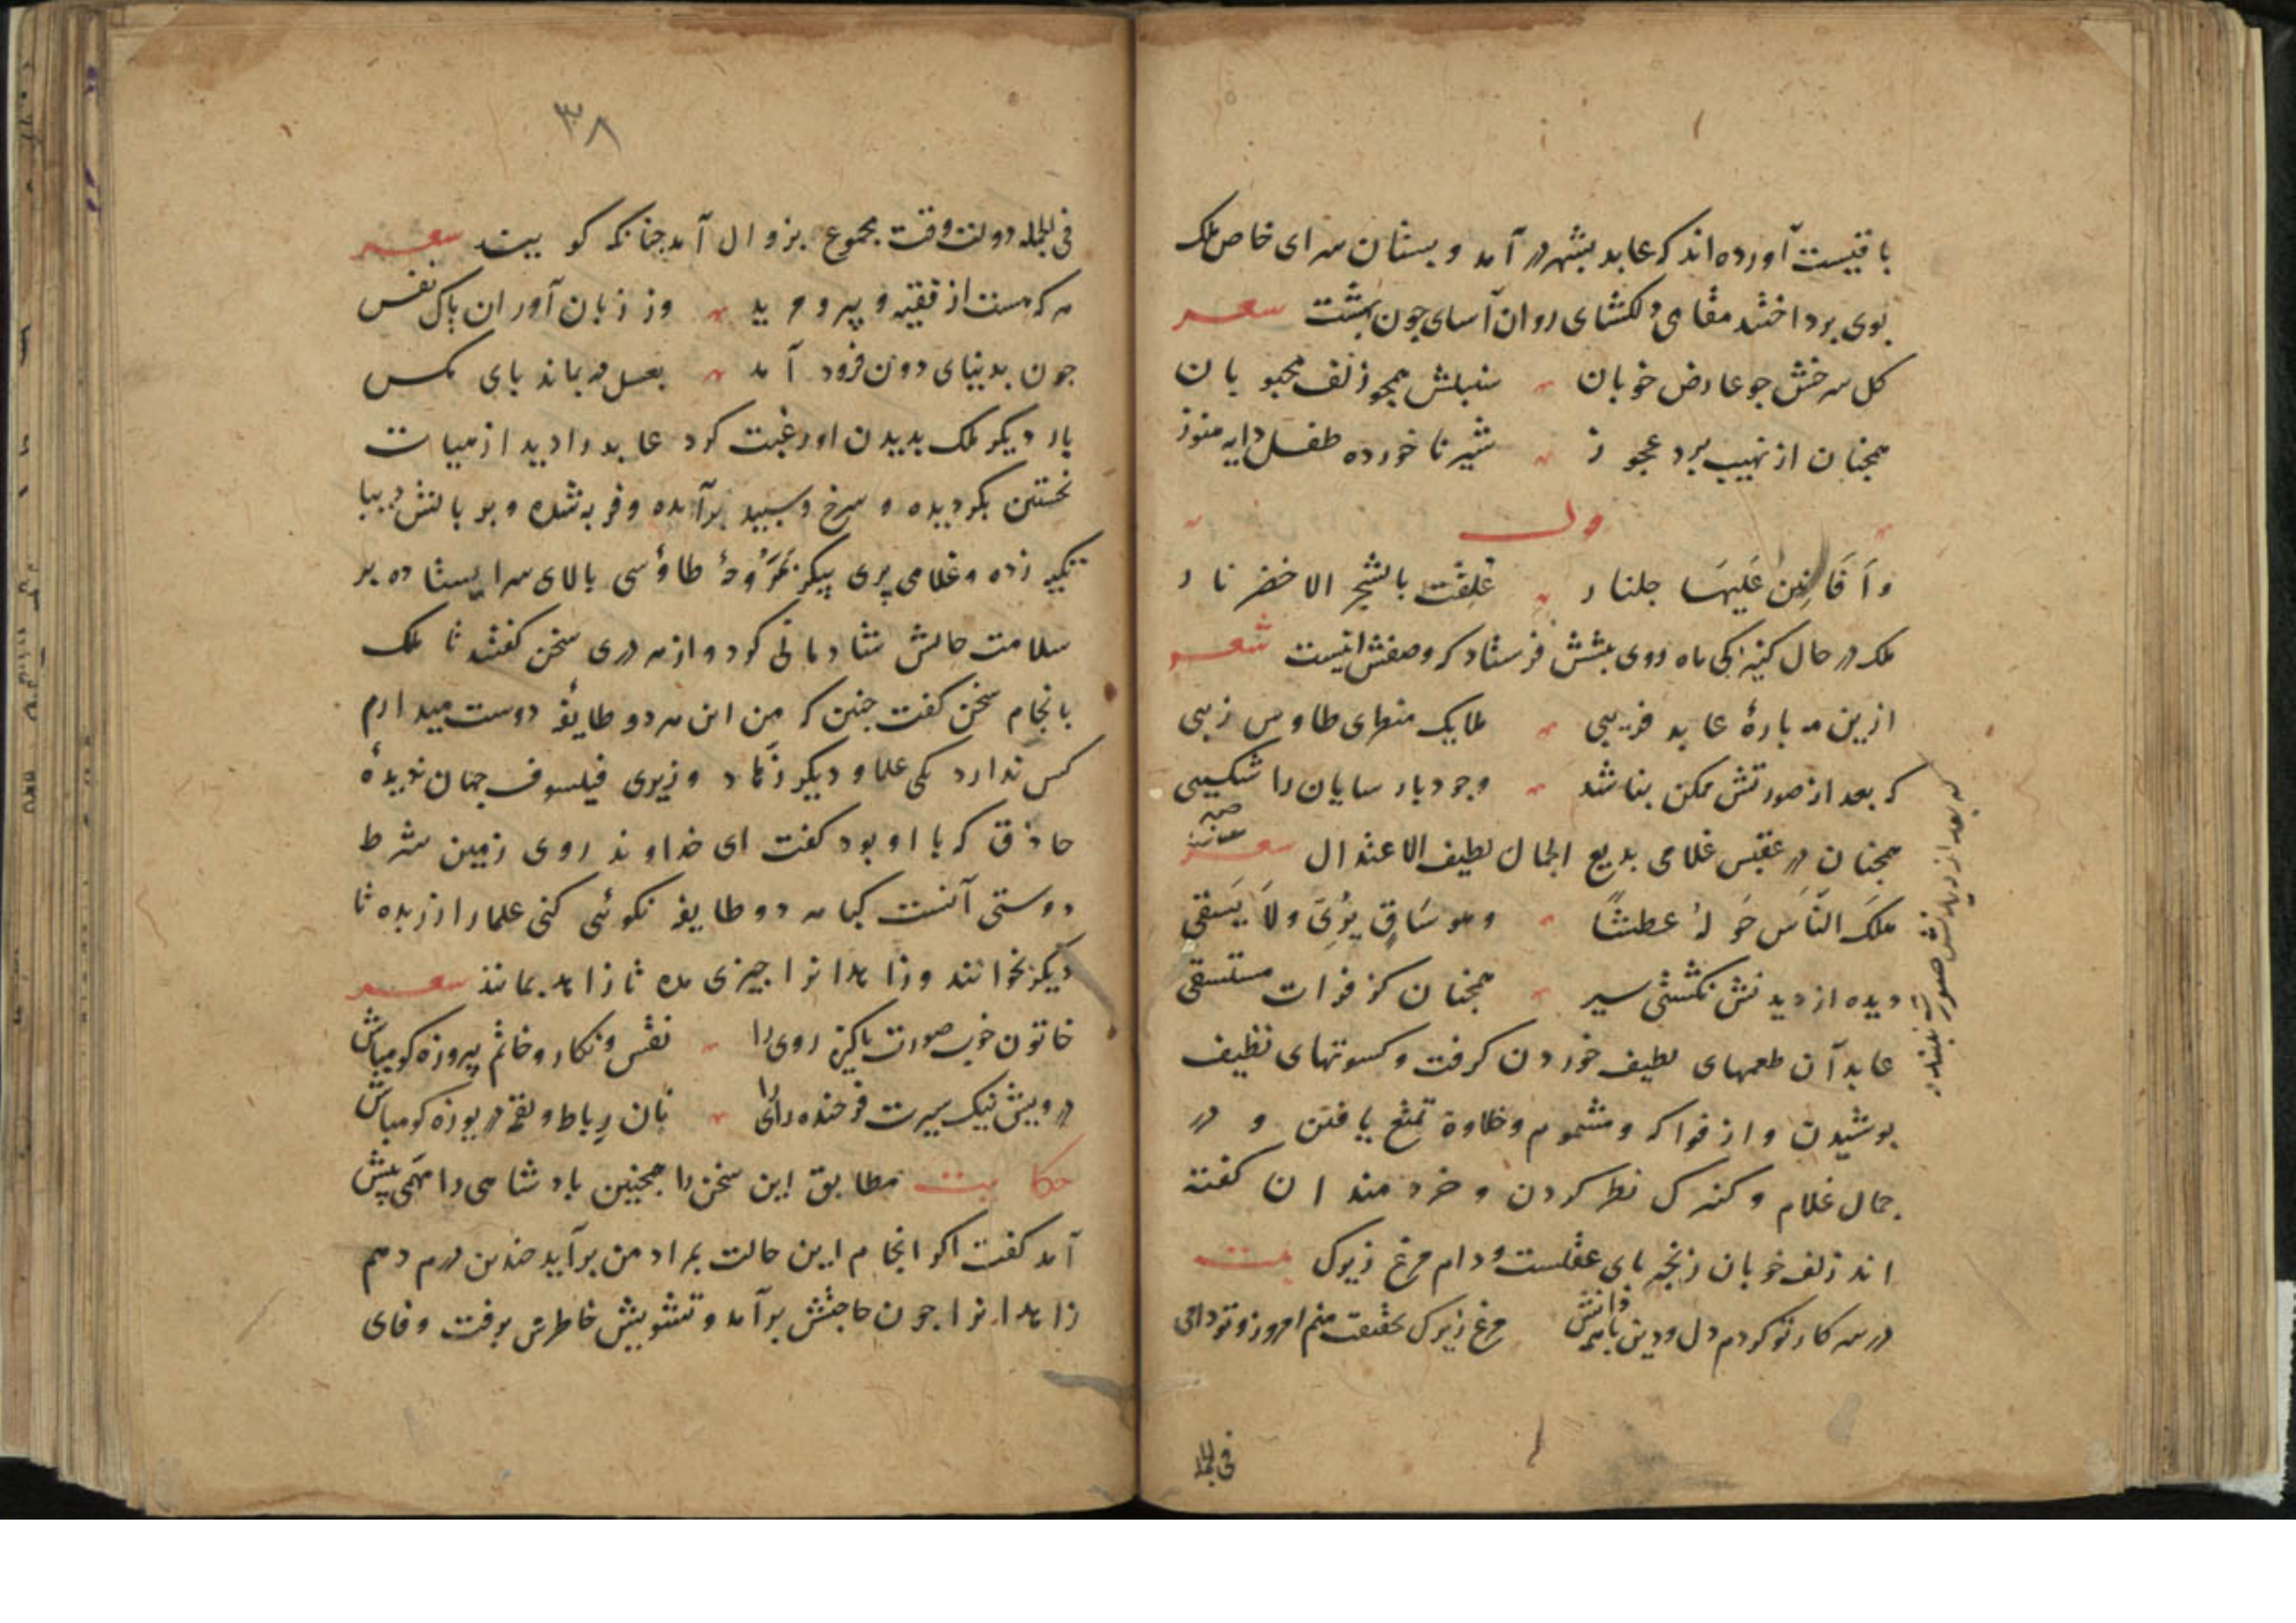 باقیست آورده‌اند که عابد بشهر در آمد و بستان سرای خاص ملک
بوی برداختند مقامی دلکشای روان آسای جون بهشت شعر
کل سرخش جو عارض خوبان سنبلش همجو زلف محبوبان
همجنان از نهیب برد عجوز شیر ناخورده طفل دایه هنوز
وله
وَاَفَانِینٌ عَلَیهَا جلنار عُلِقَت بالشجر الاخضر نار
ملک در حال کنیزکی ماه روی بیشش فرستاد که وصفش اینست شعر
ازین مه بارهٔ عابد فریبی ملایک منظری طاوس زیبی
که بعد از صورتش ممکن بناشد وجود بارسایان را شکیبی
که بعد از دیدنش صورت نبندد
همجنان در عقبس غلامی بدیع الجمال لطیف الاعتدال شعر
هلکَ النَّاسَ حَولهُ عطشًا وهو سَاقٍ یرُیَ ولَا یَسقی
دیده از دیدنش نکشتی سیر همجنان کز فرات مستسقی
عابد آن طعمهای لطیف خوردن کرفت و کسوتهای نظیف
بوشیدن و از فواکه و مشموم و حلاوة تمتع یافتن و در
جمال غلام و کنیزک نظر کردن و خردمندان کفته
اند زلف خوبان زنجیر بای عقلست و دام مرغ زیرک بیت
در سر کار تو کردم دل و دین با همه دانش مرغ زیرک بحقیقت منم امروز و تو دامی
فی الجمله
٣٨
فی الجمله دولت وقت مجموع بزوال آمد جنانکه کویند شعر
هرکه هست از فقیه و پیر و مرید وز زبان آوران پاک نفس
جون بدنیای دون فرود آمد بعسل در بماند بای مکس
بار دیکر ملک بدیدن او رغبت کرد عابد را دید از هیات
نخستین بکردیده و سرخ و سبید برآمده و فربه شده و بر بالش دیبا
تکیه زده و غلامی پری پیکر بمَروَحهٔ طاؤسی بالای سر ایستاده بر
سلامت حالش شادمانی کرد و از هر دری سخن کفتند تا ملک
بانجام سخن کفت جنین که من این هر دو طایفه دوست میدارم
کس ندارد یکی علما و دیکر زُهاد وزیری فیلسوف جهان دیدهٔ
حاذق که با او بود کفت ای خداوند روی زمین شرط
دوستی آنست کبا هر دو طایفه نکوئی کنی علما را زر بده تا
دیکر بخوانند و زاهدانرا جیزی مده تا زاهد بمانند شعر
خاتون خوب صورت باکیزه روی را نقش و نکار و خاتم پیروزه کو مباش
درویش نیک سیرت فرخنده رای را نان رباط و لقمه دریوزه کو مباش
حکایت مطابق این سخن را همجنین بادشاهی را مهمی پیش
آمد کفت اکر انجام این حالت بمراد من برآید جندین درم دهم
زاهدانرا جون حاجتش برآمد و تشویش خاطرش برفت وفای